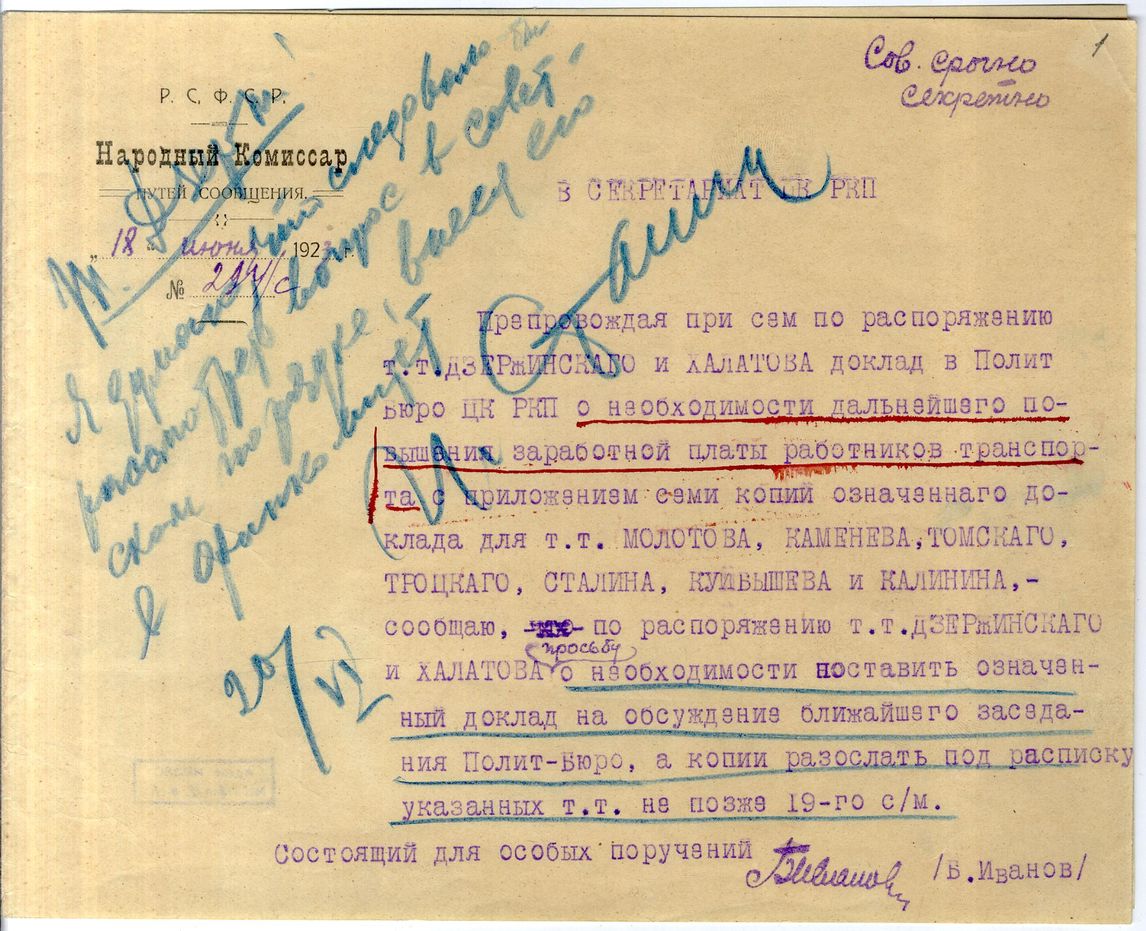 1
Сов. срочно
Секретно
Р. С. Ф. С. Р.
Народный Комиссар
ПУТЕЙ СООБЩЕНИЯ.
„ 18 " июня 192 г.
№ /с
В СЕКРЕТАРИАТ ЦК РКП
Препровождая при сем по распоряжению
т.т.ДЗЕРЖИНСКАГО и ХАЛАТОВА доклад в Полит
Бюро ЦК РКП о необходимости дальнейшего по-
вышения заработной платы работников транспор-
та с приложением семи копий означеннаго до-
клада для т.т. МОЛОТОВА, КАМЕНЕВА,ТОМСКАГО,
ТРОЦКАГО, СТАЛИНА, КУЙБЫШЕВА и КАЛИНИНА,-
сообщаю, их по распоряжению т.т.ДЗЕРЖИНСКАГО
просьбу
и ХАЛАТОВА о необходимости поставить означен-
ный доклад на обсуждение ближайшего заседа-
ния Полит-Бюро, а копии разослать под расписку
указанных т.т. не позже 19-го с/м.
Состоящий для особых поручений
БИванов
/Б.Иванов/
Я думаю, что следовало бы
рассмотрев вопрос в совет-
ском порядке, внеся его
в финкомитет
И. Сталин
20/VI